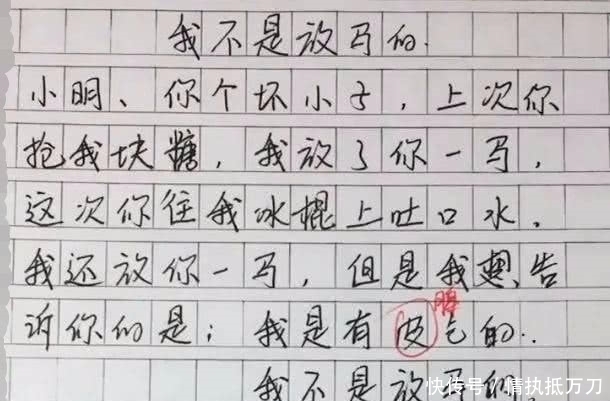 我不是放马的.
小明、你个坏小子，上次你
抢我块糖，我放了你一马，
这次你往我冰棍上吐口水，
我还放你一马，但是我想告
诉你的是：我是有皮气的..
脾
我不是放马的
快传号／情执抵万刀